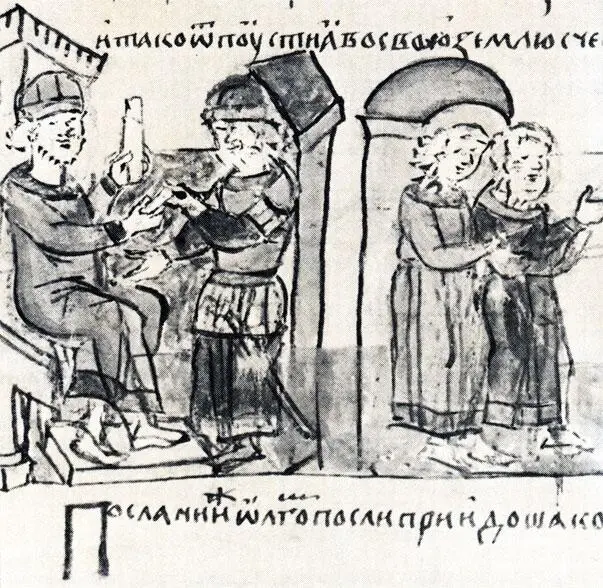 и тако ѿпоусти ѧ во свою землю с че
Посланнии ѡлго посли приидоша ко